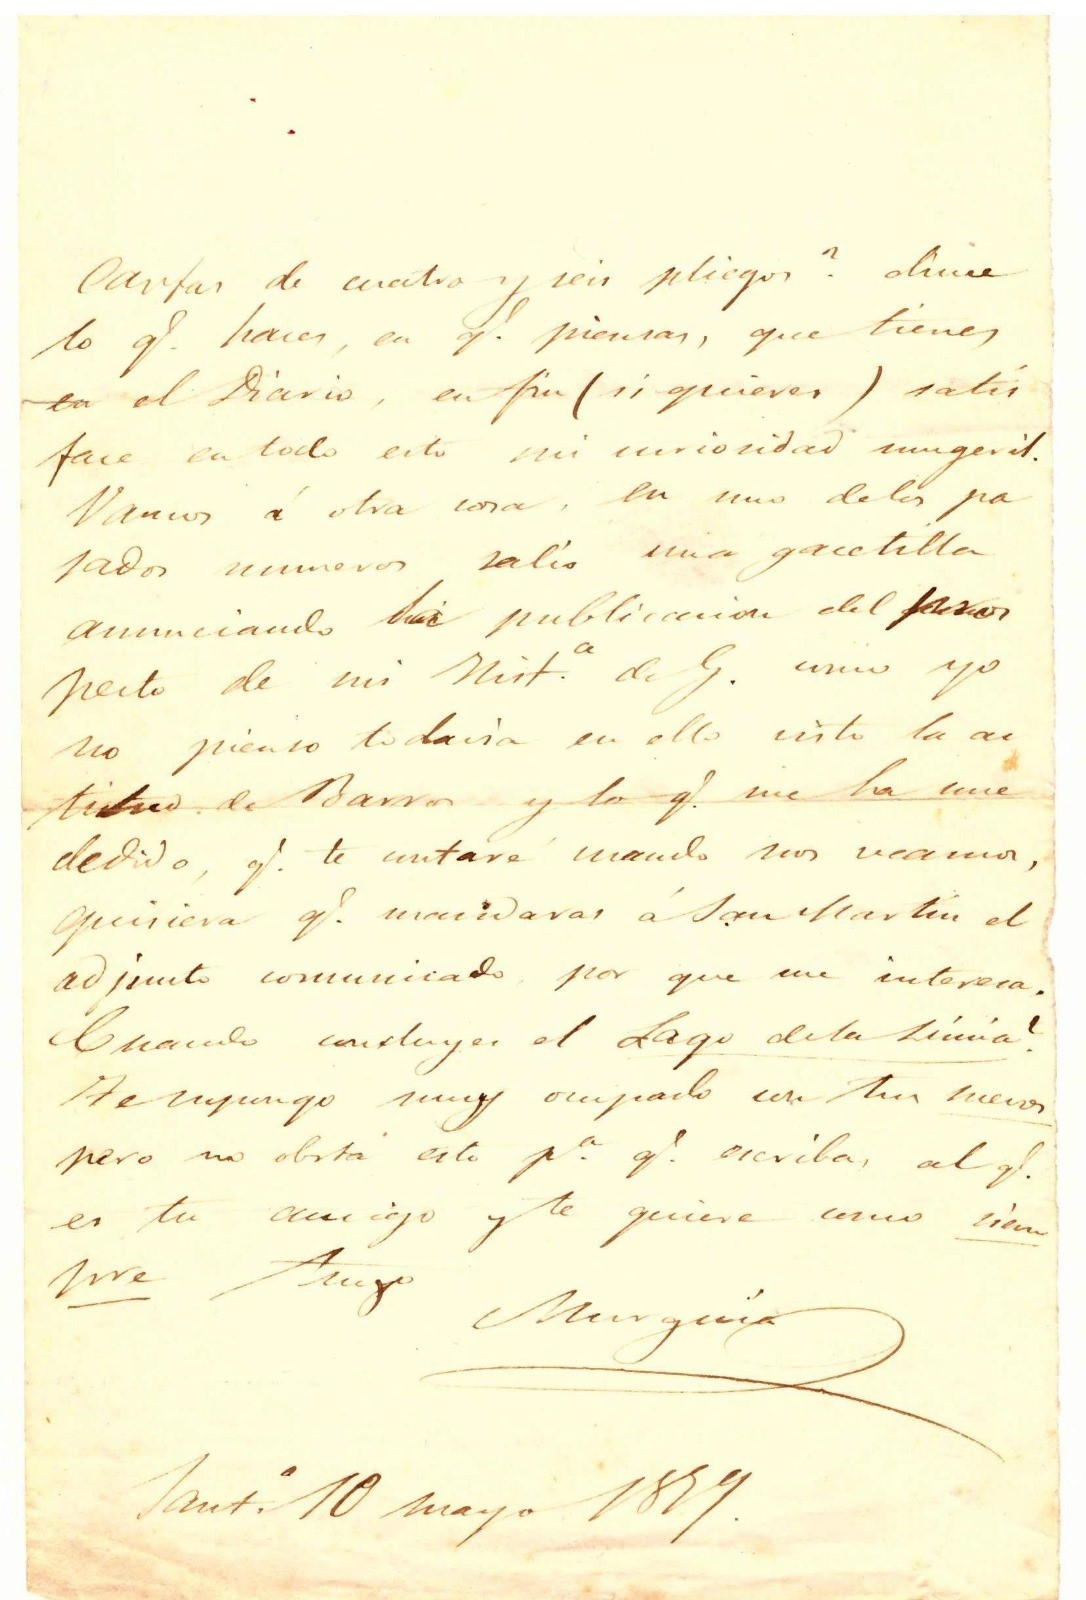 Cartas de cuatro y seis pliegos? dime
lo q.e haces, en q.e piensas, que tienes
en el Diario, en fin (si quieres) satis
face en todo esto mi curiosidad mugeril.
Vamos á otra cosa, en uno de los pa
sados numeros salio una gacetilla
anunciando la publicacion del pros
pecto de mi Hist.a de G. como yo
no pienso todavia en ello visto la ac
titud de Barros y lo q.e me ha suce
dedido, q.e te contaré cuando nos veamos,
quisiera q.e mandaras á San Martin el
adjunto comunicado, por que me interesa.
Cuando concluyes el Lago de la Limia?
Te supongo muy ocupado con tus
pero no obsta esto p.a q.e escribas al q.e
es tu amigo y te quiere como siem
pre Tuyo
Murguia
Sant.o 10 mayo 1859.